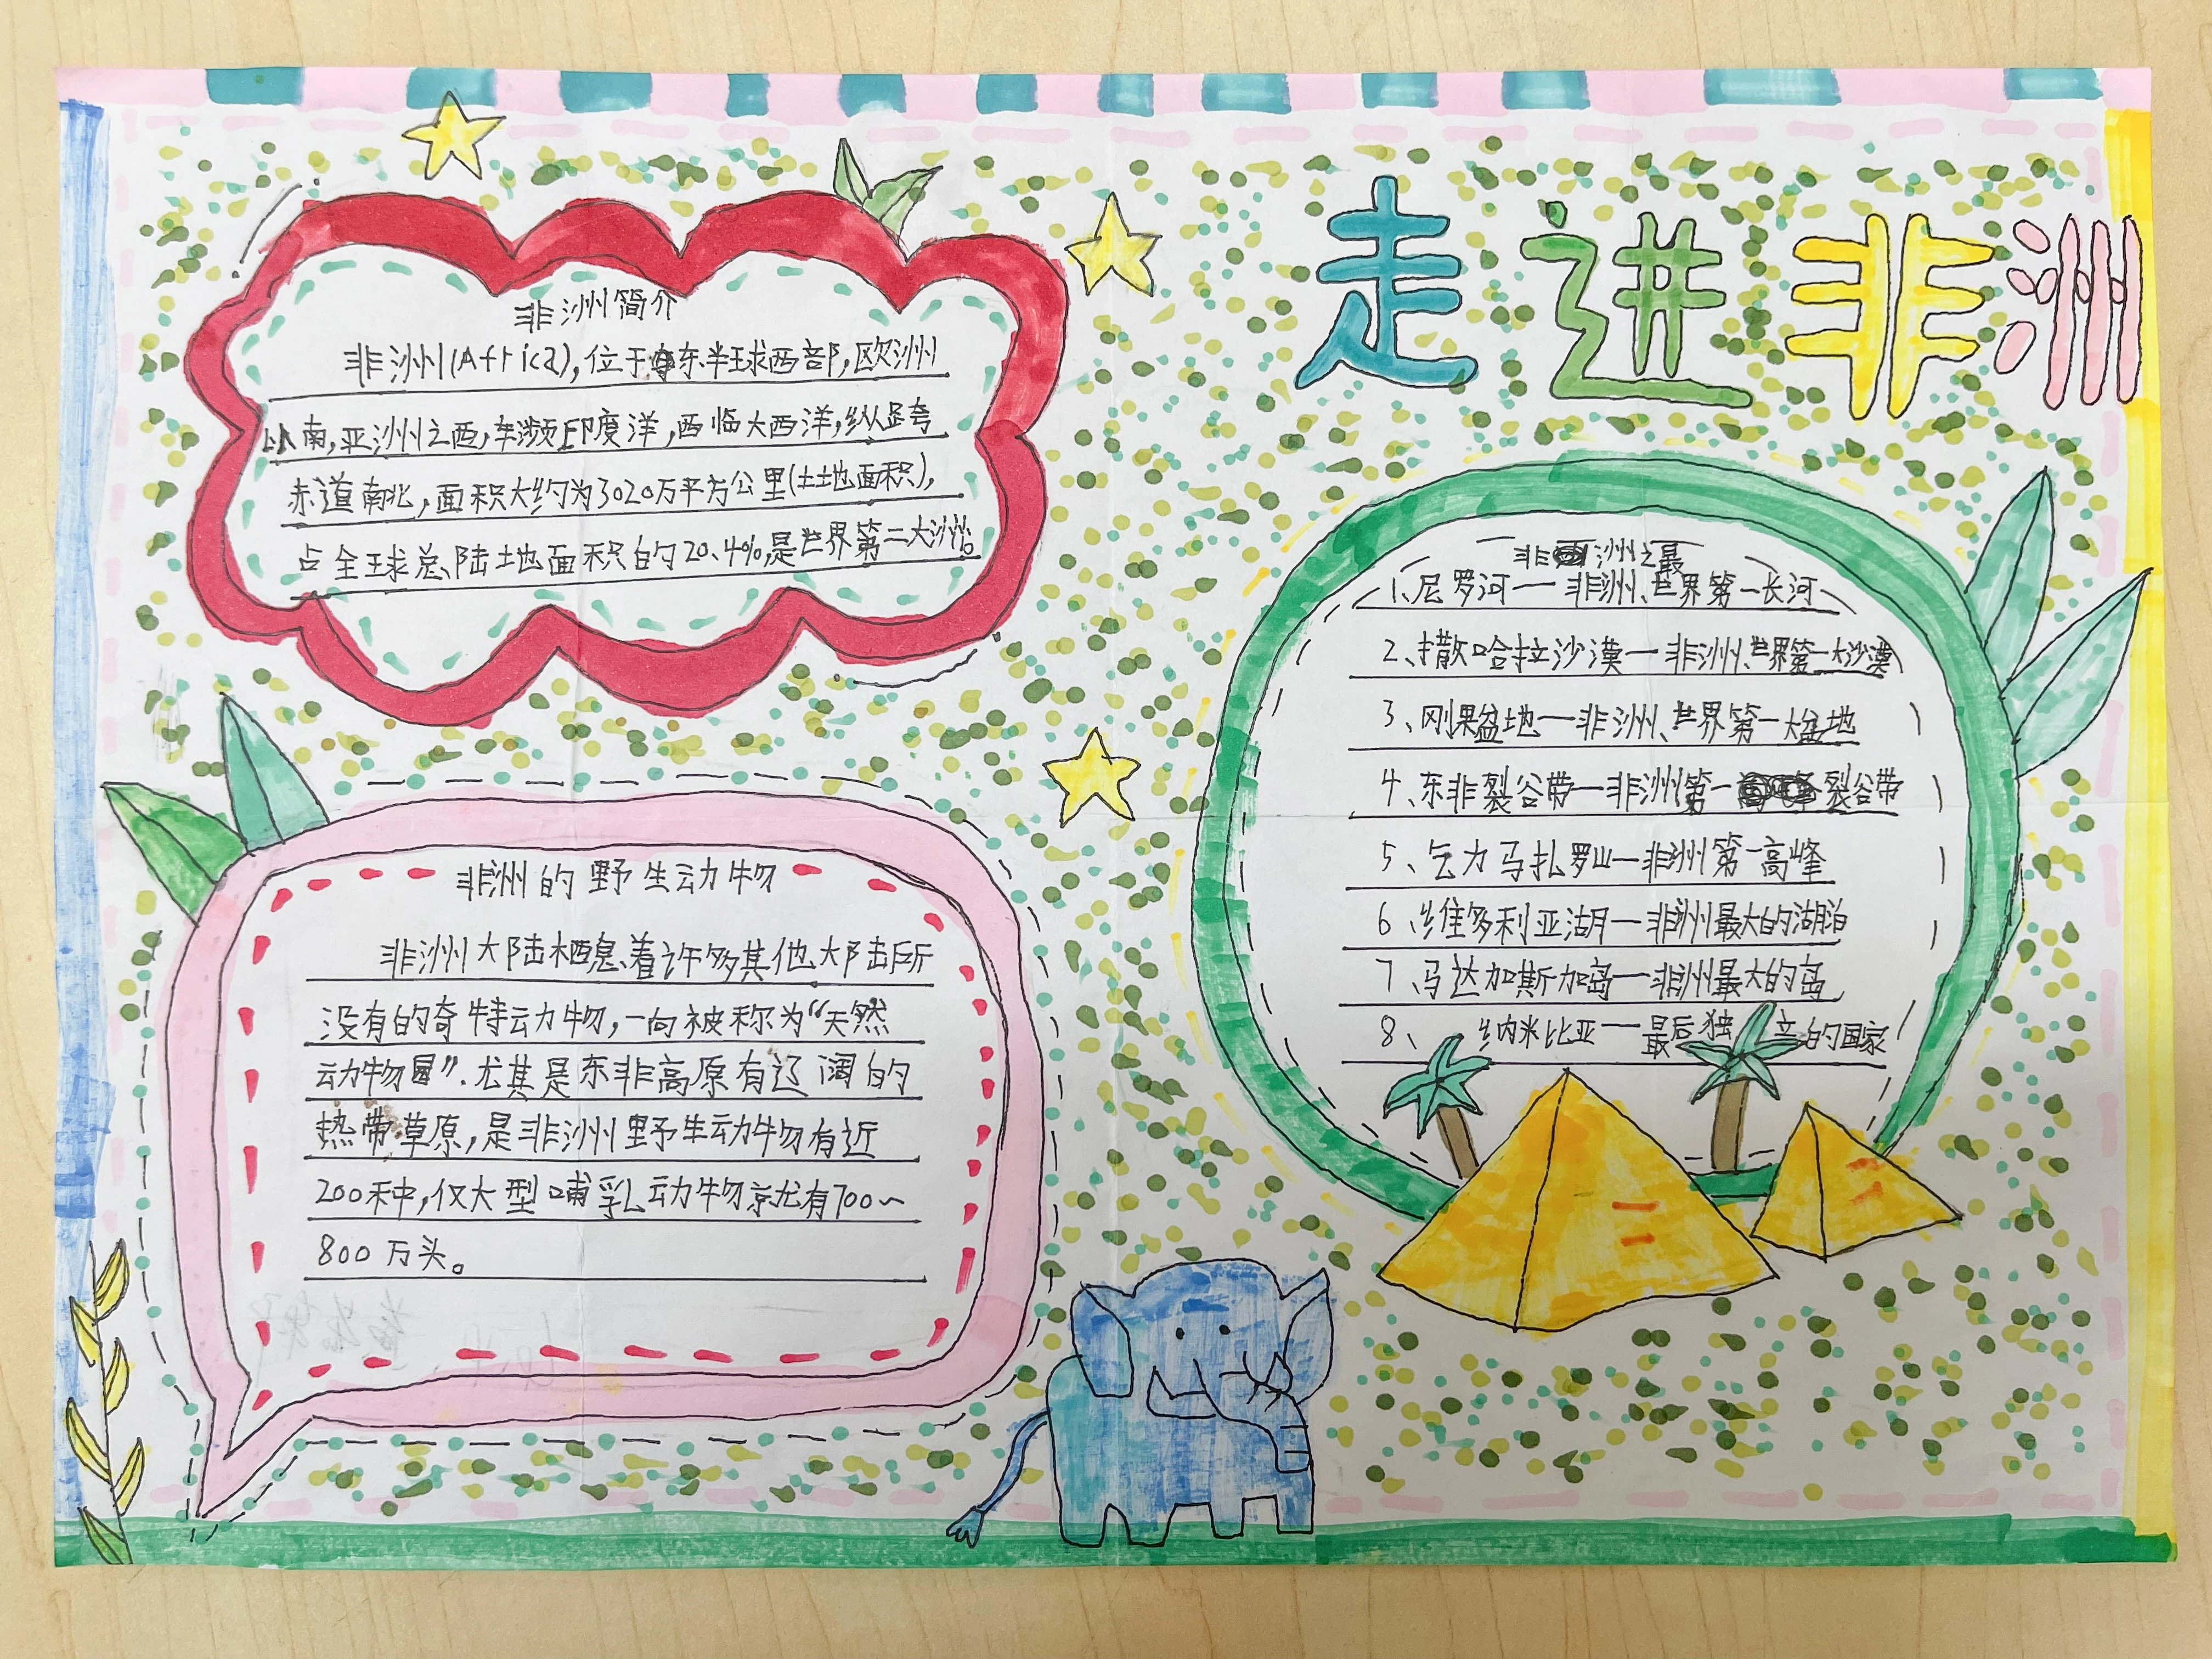 走进非洲
非洲简介
非洲(Africa),位于东半球西部,欧洲
以南,亚洲之西,东濒印度洋,西临大西洋,纵跨
赤道南北,面积大约为3020万平方公里(土地面积),
占全球总陆地面积的20.4%,是世界第二大洲
非洲的野生动物
非洲大陆栖息着许多其他大陆所
没有的奇特动物,一向被称为“天然
动物园”.尤其是东非高原有辽阔的
热带草原,是非洲野生动物有近
200种,仅大型哺乳动物就有700~
800万头。
非洲之最
1、尼罗河一非洲、世界第一长河
2、撒哈拉沙漠一非洲、世界第一大沙漠
3、刚果盆地一非洲、世界第一大盆地
4、东非裂谷带一非洲第一裂谷带
5、乞力马扎罗山一非洲第一高峰
6、维多利亚湖一非洲最大的湖泊
7、马达加斯加岛一非洲最大的岛
8、纳米比亚一最后独立的国家